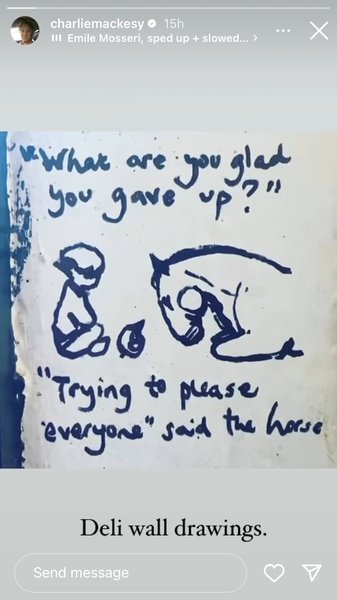 charliemackesy 15h
Emile Mosseri, sped up + slowed... >
"What are you glad
you gave up?"
"Trying to please
everyone" said the horse
Deli wall drawings.
Send message